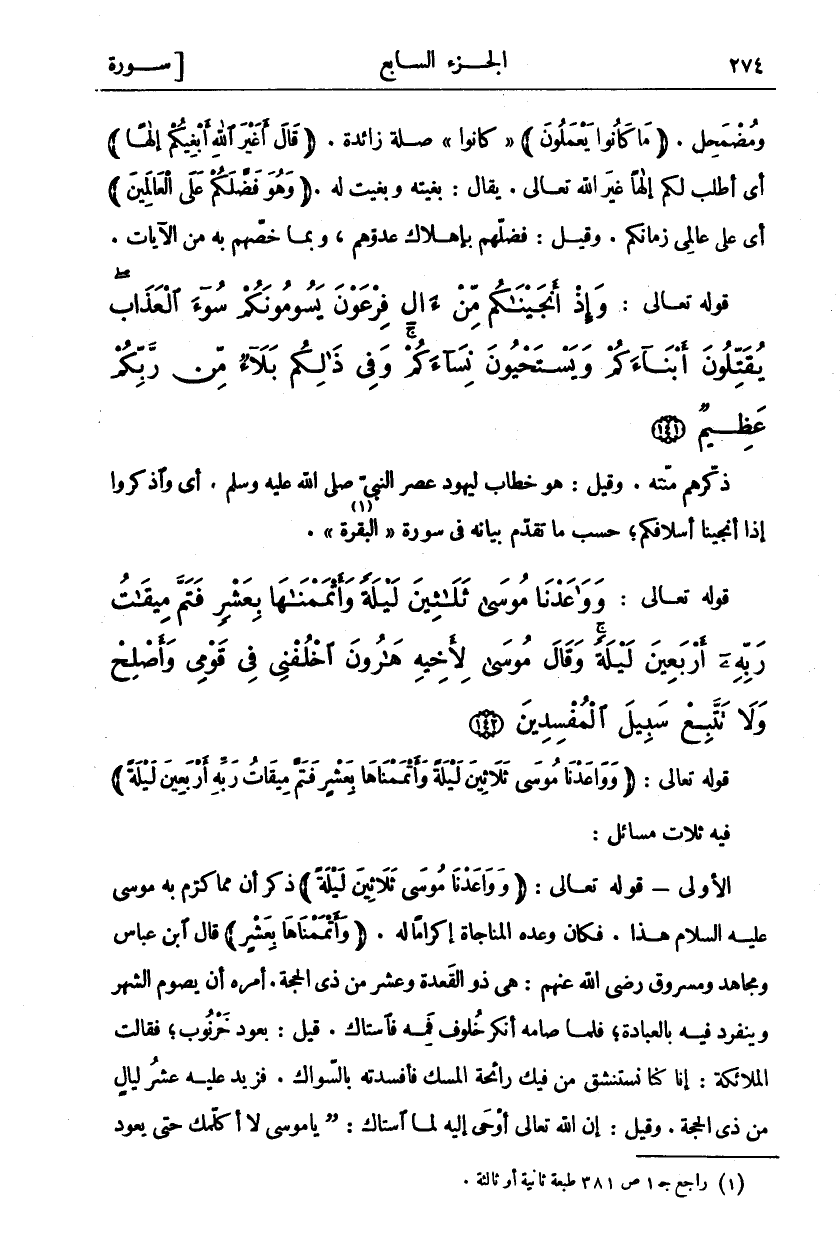 ٢٧٤ الجـزء السـابع [ســورة
ومُضْمَحِل . ﴿ مَا كَانُوا يَعْمَلُونَ ﴾ « كانوا » صـلة زائدة . ﴿ قَالَ أَغَيْرَ ٱللهِ أَبْغِيكُمْ إِلٰهًا ﴾
أى أطلب لكم إلٰهاً غيرَ الله تعـالى . يقال : بغيته وبغيت له . ﴿ وَهُوَ فَضَّلَكُمْ عَلَى الْعَالَمِينَ ﴾
أى على عالمِى زمانكم . وقيـل : فضلّهم بإهـلاك عدوّهم ، وبمـا خصّهم به من الآيات .
قوله تعـالى : وَإِذْ أَنجَيْنَـٰكُم مِّنْ ءَالِ فِرْعَوْنَ يَسُومُونَكُمْ سُوٓءَ ٱلْعَذَابِ ۖ
يُقَتِّلُونَ أَبْنَـآءَكُمْ وَيَسْـتَحْيُونَ نِسَآءَكُمْ ۚ وَفِى ذَٰلِكُم بَلَآءٌ مِّن رَّبِّكُمْ
عَظِـيمٌ ﴿١٤١﴾
ذكّرهم منّته . وقيل : هو خطاب ليهود عصر النبىّ صلى الله عليه وسلم . أى وٱذكروا
إذا أنجينا أسلافكم؛ حسب ما تقدّم بيانه فى سورة « البقرة (١) » .
قوله تعـالى : وَوَٰعَدْنَا مُوسَىٰ ثَلَـٰثِينَ لَيْلَةً وَأَتْمَمْنَـٰهَا بِعَشْرٍ فَتَمَّ مِيقَـٰتُ
رَبِّهِۦٓ أَرْبَعِينَ لَيْلَةً ۚ وَقَالَ مُوسَىٰ لِأَخِيهِ هَـٰرُونَ ٱخْلُفْنِى فِى قَوْمِى وَأَصْلِحْ
وَلَا تَتَّبِعْ سَبِيلَ ٱلْمُفْسِدِينَ ﴿١٤٢﴾
قوله تعالى : ﴿ وَوَاعَدْنَا مُوسَى ثَلَاثِينَ لَيْلَةً وَأَتْمَمْنَاهَا بِعَشْرٍ فَتَمَّ مِيقَاتُ رَبِّهِ أَرْبَعِينَ لَيْلَةً ﴾
فيه ثلاث مسائل :
الأولى — قوله تعـالى : ﴿ وَوَاعَدْنَا مُوسَى ثَلَاثِينَ لَيْلَةً ﴾ ذكر أن مما كرّم به موسى
عليـه السلام هـذا . فكان وعده المناجاة إكرامًا له . ﴿ وَأَتْمَمْنَاهَا بِعَشْرٍ ﴾ قال ٱبن عباس
ومجاهد ومسروق رضى الله عنهم : هى ذو القَعدة وعشر من ذى الحجة . أمره أن يصوم الشهر
وينفرد فيـه بالعبادة؛ فلمـا صامه أنكر خُلوف فَمِـه فٱستاك . قيل : بعود خَرْنُوب؛ فقالت
الملائكة : إنا كنا نستنشق من فيك رائحة المسك فأفسدته بالسّواك . فزيد عليـه عشرُ ليالٍ
من ذى الحجة . وقيل : إن الله تعالى أوْحَى إليه لمـا ٱستاك : ” ياموسى لا أكلّمك حتى يعود
(١) راجع جـ ١ ص ٣٨١ طبعة ثانية أو ثالثة .